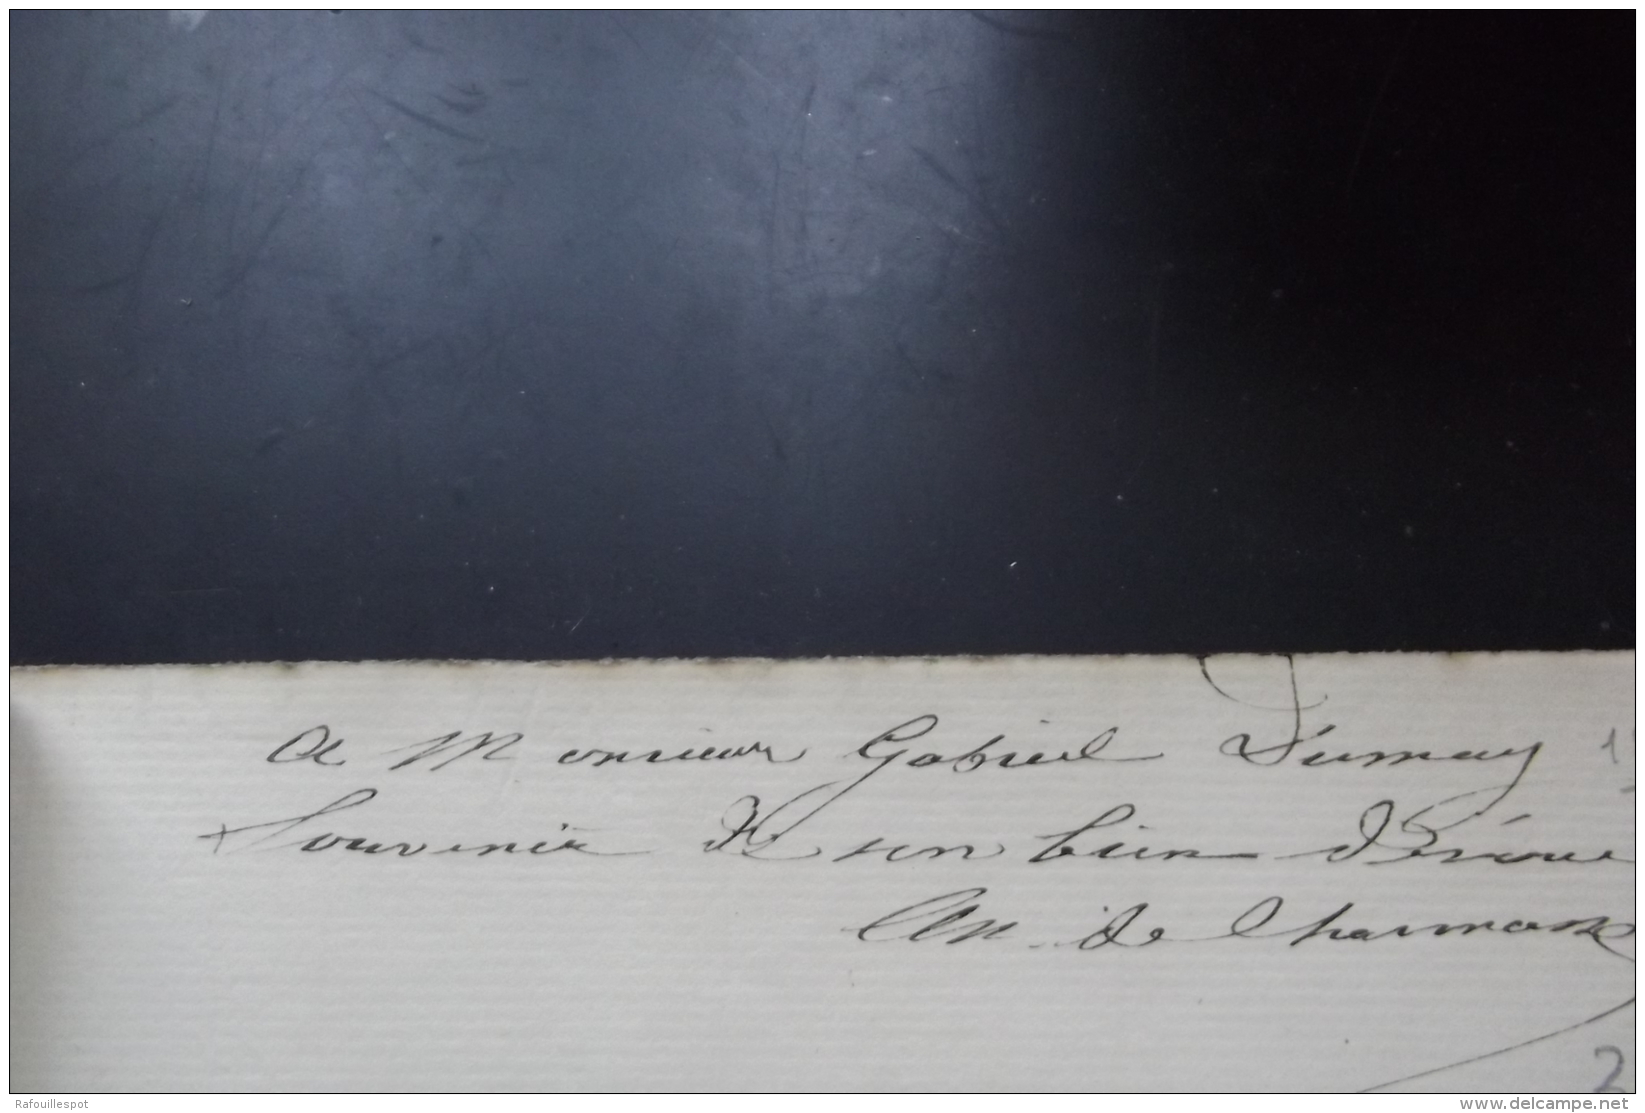 A Monsieur Gabriel Dumay
Souvenir de son bien dévoué
An. de Charmasse
2
Rafouillespot
www.delcampe.net